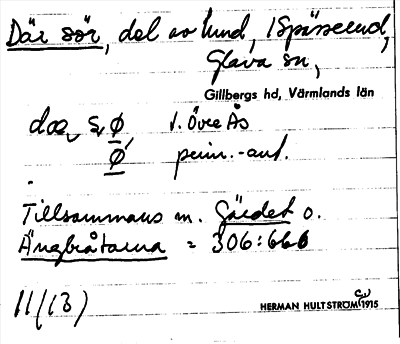 Där sör, del av Lund, i Spässerud,
Glava sn,
Gillbergs hd, Värmlands län
t. Övre Ås
pers.-ant.
Tillsammans m. Gärdet o.
Ängbråtarna = 306:666
11(13)
HERMAN HULTSTRÖM 1915